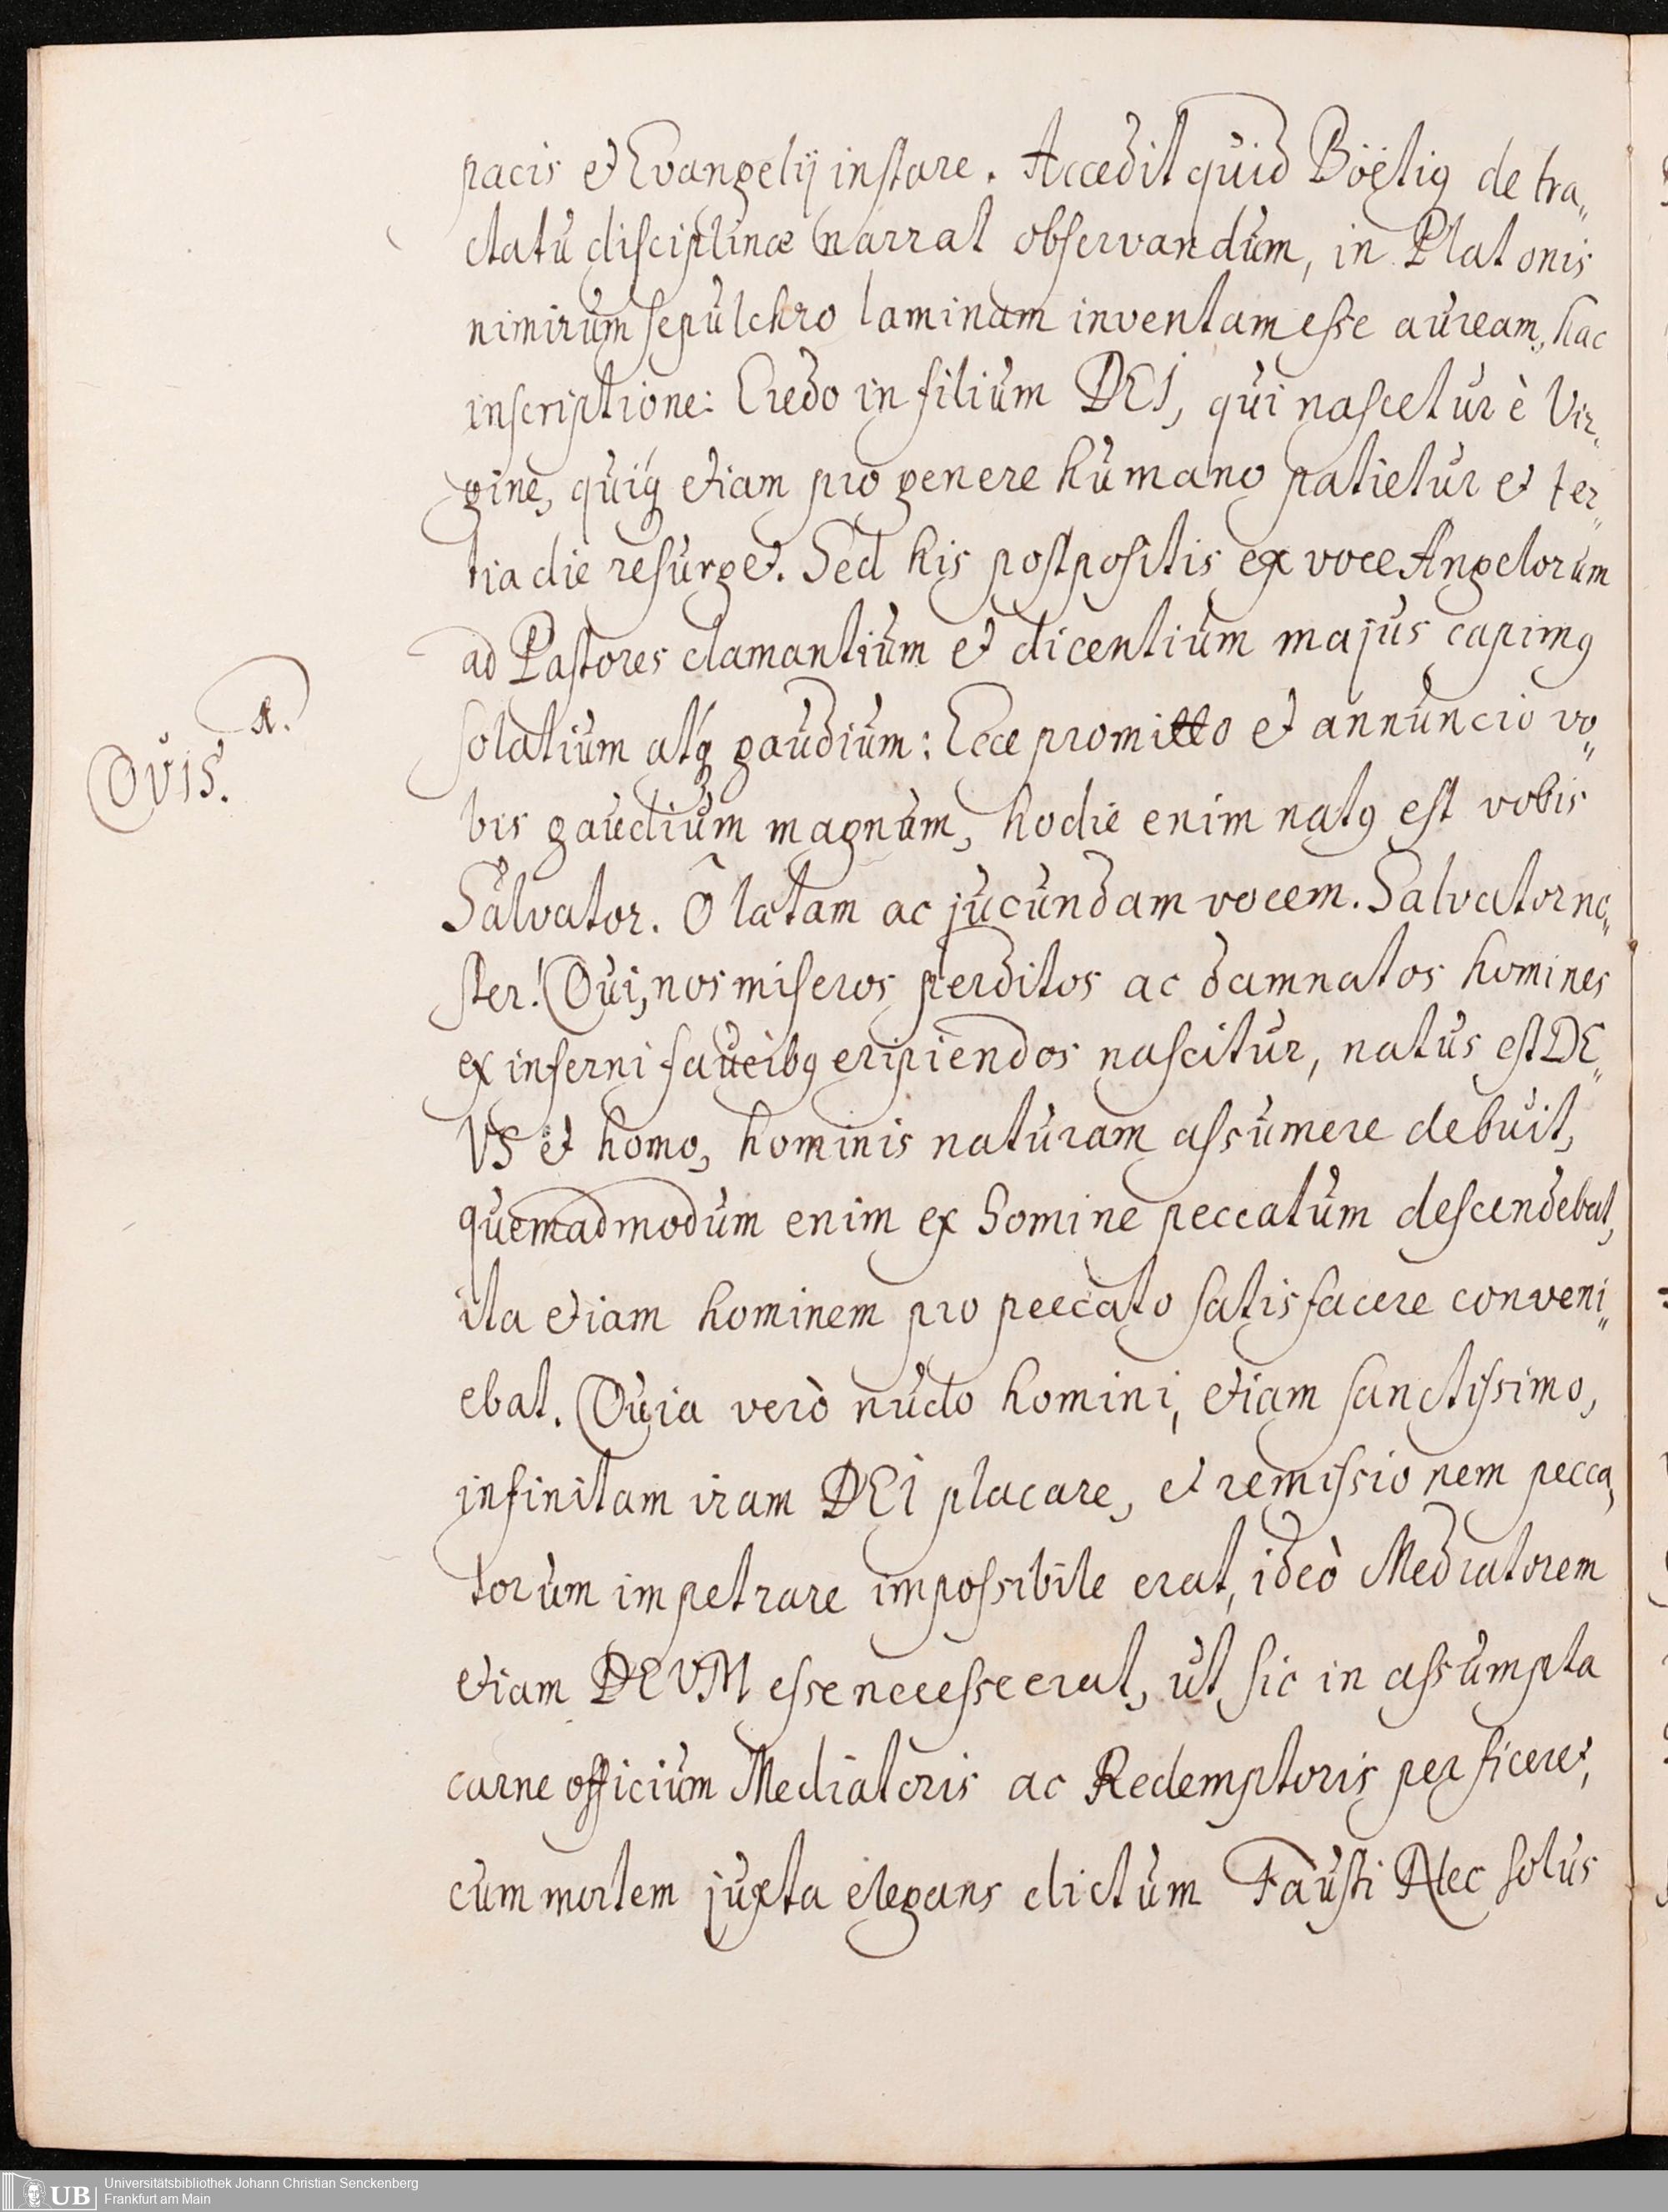 pacis et Evangelij instare. Accedit quid Böetiq de tra„
ctatu disciplinæ narrat observandum, in Platonis
nimirum sepulchro laminam inventam esse auream, hac
inscriptione: Credo in filium DEI, qui nascetur è Vir„
gine, quiq́ etiam pro genere humano patietur et ter„
tia die resurget. Sed his postpositis ex voce Angelorum
ad Pastores clamantium et dicentium majus capimq
A.
Quis.
solatium atq́ gaudium: Ecce promitto et annuncio vo„
bis gaudium magnum, hodie enim natq est vobis
Salvator. Ô lætam ac jucundam vocem. Salvator no„
ster! Qui, nos miseros perditos ac damnatos homines
ex inferni faucibq eripiendos nascitur, natus est DE„
VS et homo, hominis naturam assumere debuit,
quemadmodum enim ex homine peccatum descendebat,
ita etiam hominem pro peccato satisfacere conveni„
ebat. Quia verò nudo homini, etiam sanctissimo,
infinitam iram DEI placare, et remissionem pecca„
torum impetrare impossibile erat, ideò Mediatorem
etiam DEVM esse necesse erat, ut sic in assumpta
carne officium Mediatoris ac Redemptoris perficeret,
cum mortem juxta elegans dictum Fausti Nec solus
Universitätsbibliothek Johann Christian Senckenberg
UB Frankfurt am Main